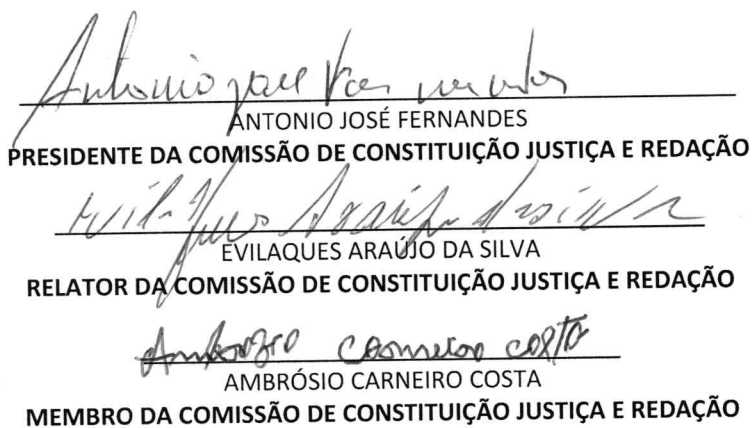 Antonio José Fernandes
ANTONIO JOSÉ FERNANDES
PRESIDENTE DA COMISSÃO DE CONSTITUIÇÃO JUSTIÇA E REDAÇÃO
Araújo da Silva
EVILAQUES ARAÚJO DA SILVA
RELATOR DA COMISSÃO DE CONSTITUIÇÃO JUSTIÇA E REDAÇÃO
Ambrosio Carneiro Costa
AMBRÓSIO CARNEIRO COSTA
MEMBRO DA COMISSÃO DE CONSTITUIÇÃO JUSTIÇA E REDAÇÃO